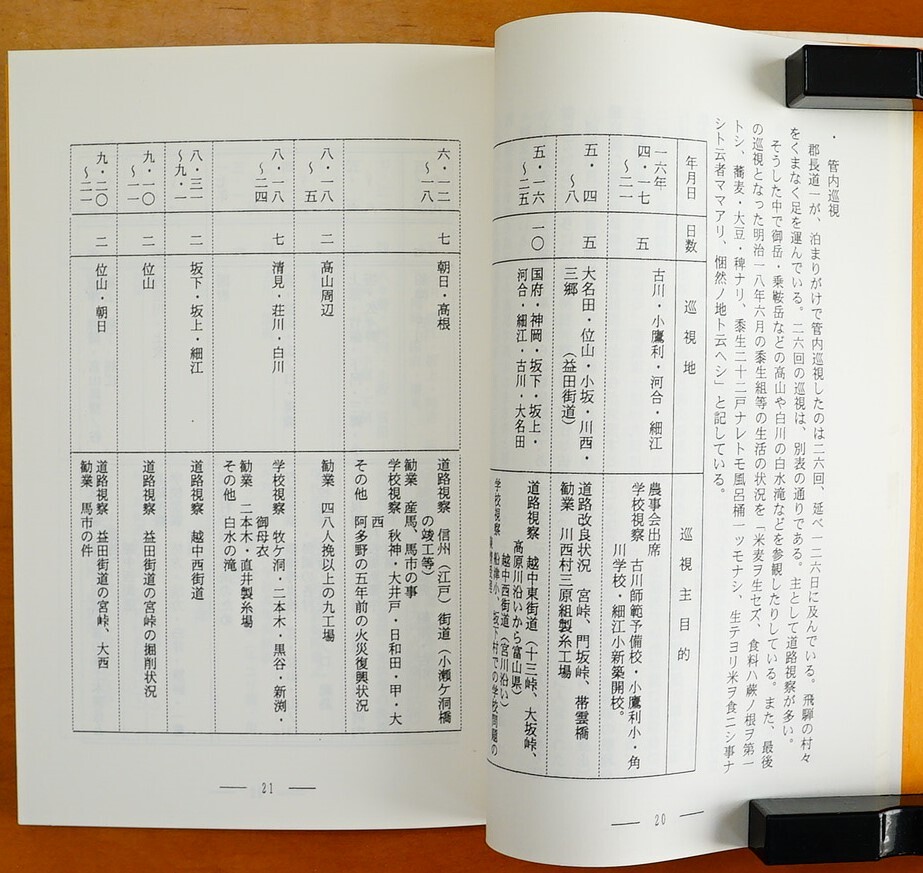 ・管内巡視
郡長道一が、泊まりがけで管内巡視したのは二六回、延べ一二六日に及んでいる。飛騨の村々
をくまなく足を運んでいる。二六回の巡視は、別表の通りである。主として道路視察が多い。
そうした中で御岳・乗鞍岳などの高山や白川の白水滝などを参観したりしている。また、最後
の巡視となった明治一八年六月の黍生組等の生活の状況を「米麦ヲ生セズ、食料ハ蕨ノ根ヲ第一
トシ、蕎麦・大豆・稗ナリ、黍生二十二戸ナレトモ風呂桶一ツモナシ、生テヨリ米ヲ食ニシ事ナ
シト云者ママアリ、惘然ノ地ト云ヘシ」と記している。
年月日
日数
巡視地
巡視主目的
一六年
四・一七
〜二一
五
古川・小鷹利・河合・細江
農事会出席
学校視察 古川師範予備校・小鷹利小・角
川学校・細江小新築開校。
五・四
〜八
五
大名田・位山・小坂・川西・
三郷 (益田街道)
道路改良状況 宮峠、門坂峠、帯雲橋
勧業 川西村三原組製糸工場
五・一六
〜二五
一〇
国府・神岡・坂下・坂上・
河合・細江・古川・大名田
道路視察 越中東街道(十三峠、大坂峠、
高原川沿いから富山県)
越中西街道(宮川沿い)
学校視察 船津小、坂下村での学校問題の
― 20 ―
六・一二
〜一八
七
朝日・高根
道路視察 信州(江戸)街道(小瀬ケ洞橋
の竣工等)
勧業 産馬、馬市の事
学校視察 秋神・大井戸・日和田・甲・大
西
その他 阿多野の五年前の火災復興状況
八・一八
〜五
二
高山周辺
勧業 四八人挽以上の九工場
八・一八
〜二四
七
清見・荘川・白川
学校視察 牧ケ洞・二本木・黒谷・新渕・
御母衣
勧業 二本木・直井製糸場
その他 白水の滝
八・三一
〜九・一
二
坂下・坂上・細江
道路視察 越中西街道
九・一〇
〜一一
二
位山
道路視察 益田街道の宮峠の掘削状況
九・二〇
〜二一
二
位山・朝日
道路視察 益田街道の宮峠、大西
勧業 馬市の件
― 21 ―